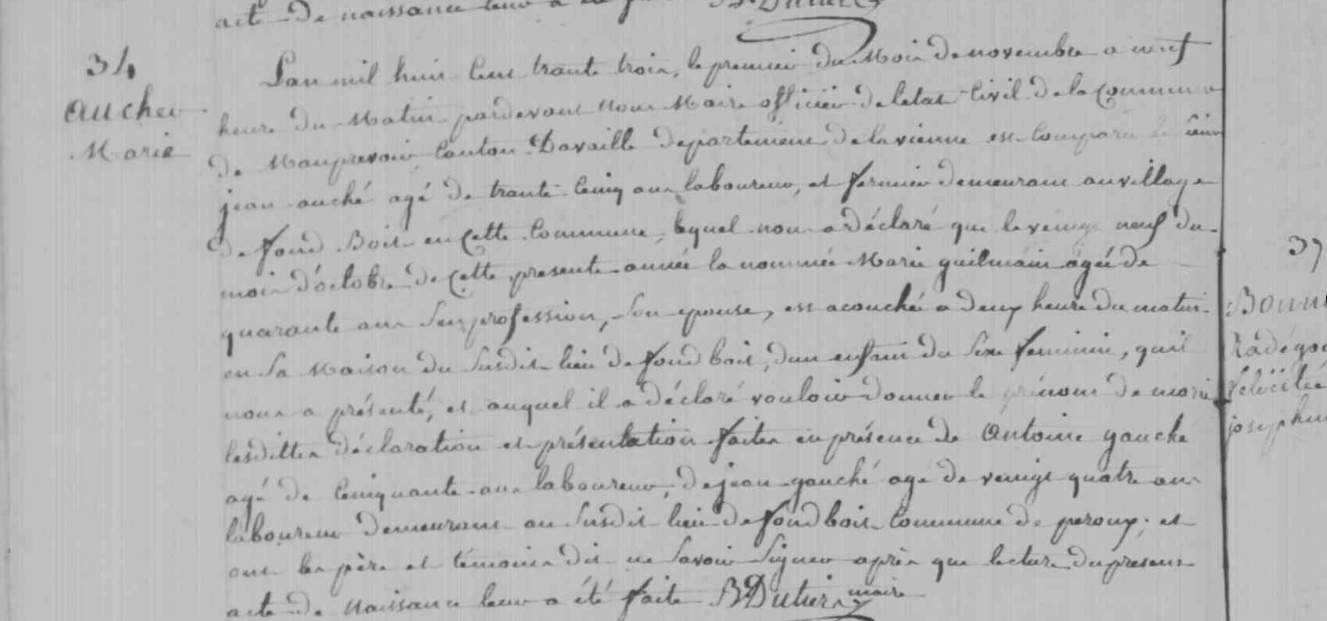 acte de naissance leur a été
34
aucher
Marie
Lan mil huit Cent trante trois, le premier du Mois de novembre a neuf
heure du Matin pardevant nous Maire officier de letat Civil de la Commune
de Mauprevoir Canton Davaille departement de lavienne est Comparu le sieur
jean auché agé de trante Cinq ans laboureur, et fermier demeurant auvillage
de fond Bois en Cette Commune, lequel nous a déclaré que le veingt neuf du
mois d'octobre de Cette presente année la nommée Marie guilmain agée de
quarante ans Sen profession, Son epouse, est acouché a deux heure du matin
en Sa Maison du Susdit lieu de fond bois, dun enfant du Sexe feminin, quil
nous a présenté, et auquel il a déclaré vouloir donner le prénom de marie
lesdittes déclaration et présentation faites en présence de Antoine gauche
agé de Cinquante ans laboureur, de jean gauché agé de veingt quatre ans
laboureur demeurant au Susdit lieu de fond bois Commune de peroux; et
ont les père et témoins dit ne Savoir Signer après que lecture du present
acte de naissance leur a été faite B Dutier maire
37
Radégo
felicitée
josephi